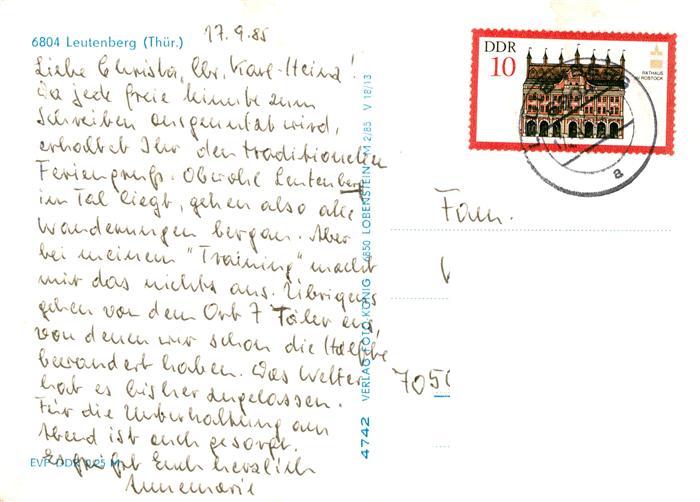 17.9.85
6804 Leutenberg (Thür.)
Liebe Christa, lbr. Karl-Heinz!
Da jede freie Minute zum
Schreiben ausgenutzt wird,
erhaltet Ihr den traditionellen
Feriengruß. Obwohl Leutenberg
im Tal liegt, gehen also alle
Wanderungen bergan. Aber
bei meinem "Training" macht
mir das nichts aus. Übrigens
gehen von dem Ort 7 Täler aus,
von denen wir schon die Hälfte
bewandert haben. Das Wetter
hat es bisher zugelassen.
Für die Unterhaltung am
Abend ist auch gesorgt.
Es grüßt Euch herzlich
Annemarie
EVP DDR 0,25 M
4742 VERLAG FOTO-KÖNIG 6850 LOBENSTEIN M 2/85 V 18/13
DDR
10
RATHAUS
ROSTOCK
a
Fam.
705